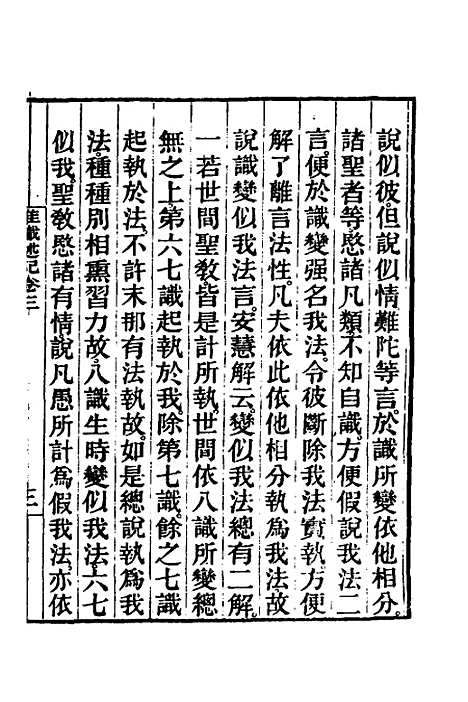 說似彼。但說似情難陀等言。於識所變依他相分。
諸聖者等愍諸凡類。不知自識。方便假說我法二
言。便於識變强名我法。令彼斷除我法實執。方便
解了離言法性。凡夫依此依他相分執為我法。故
說識變似我法言。安慧解云。變似我法總有二解。
一若世間聖教。皆是計所執。世間依八識所變總
無之上。第六七識起執於我。除第七識。餘之七識
起執於法。不許末那有法執故。如是總說執為我
法。種種別相熏習力故。八識生時變似我法。六七
似我。聖敎愍諸有情。說凡愚所計為假我法。亦依
述記卷三
三